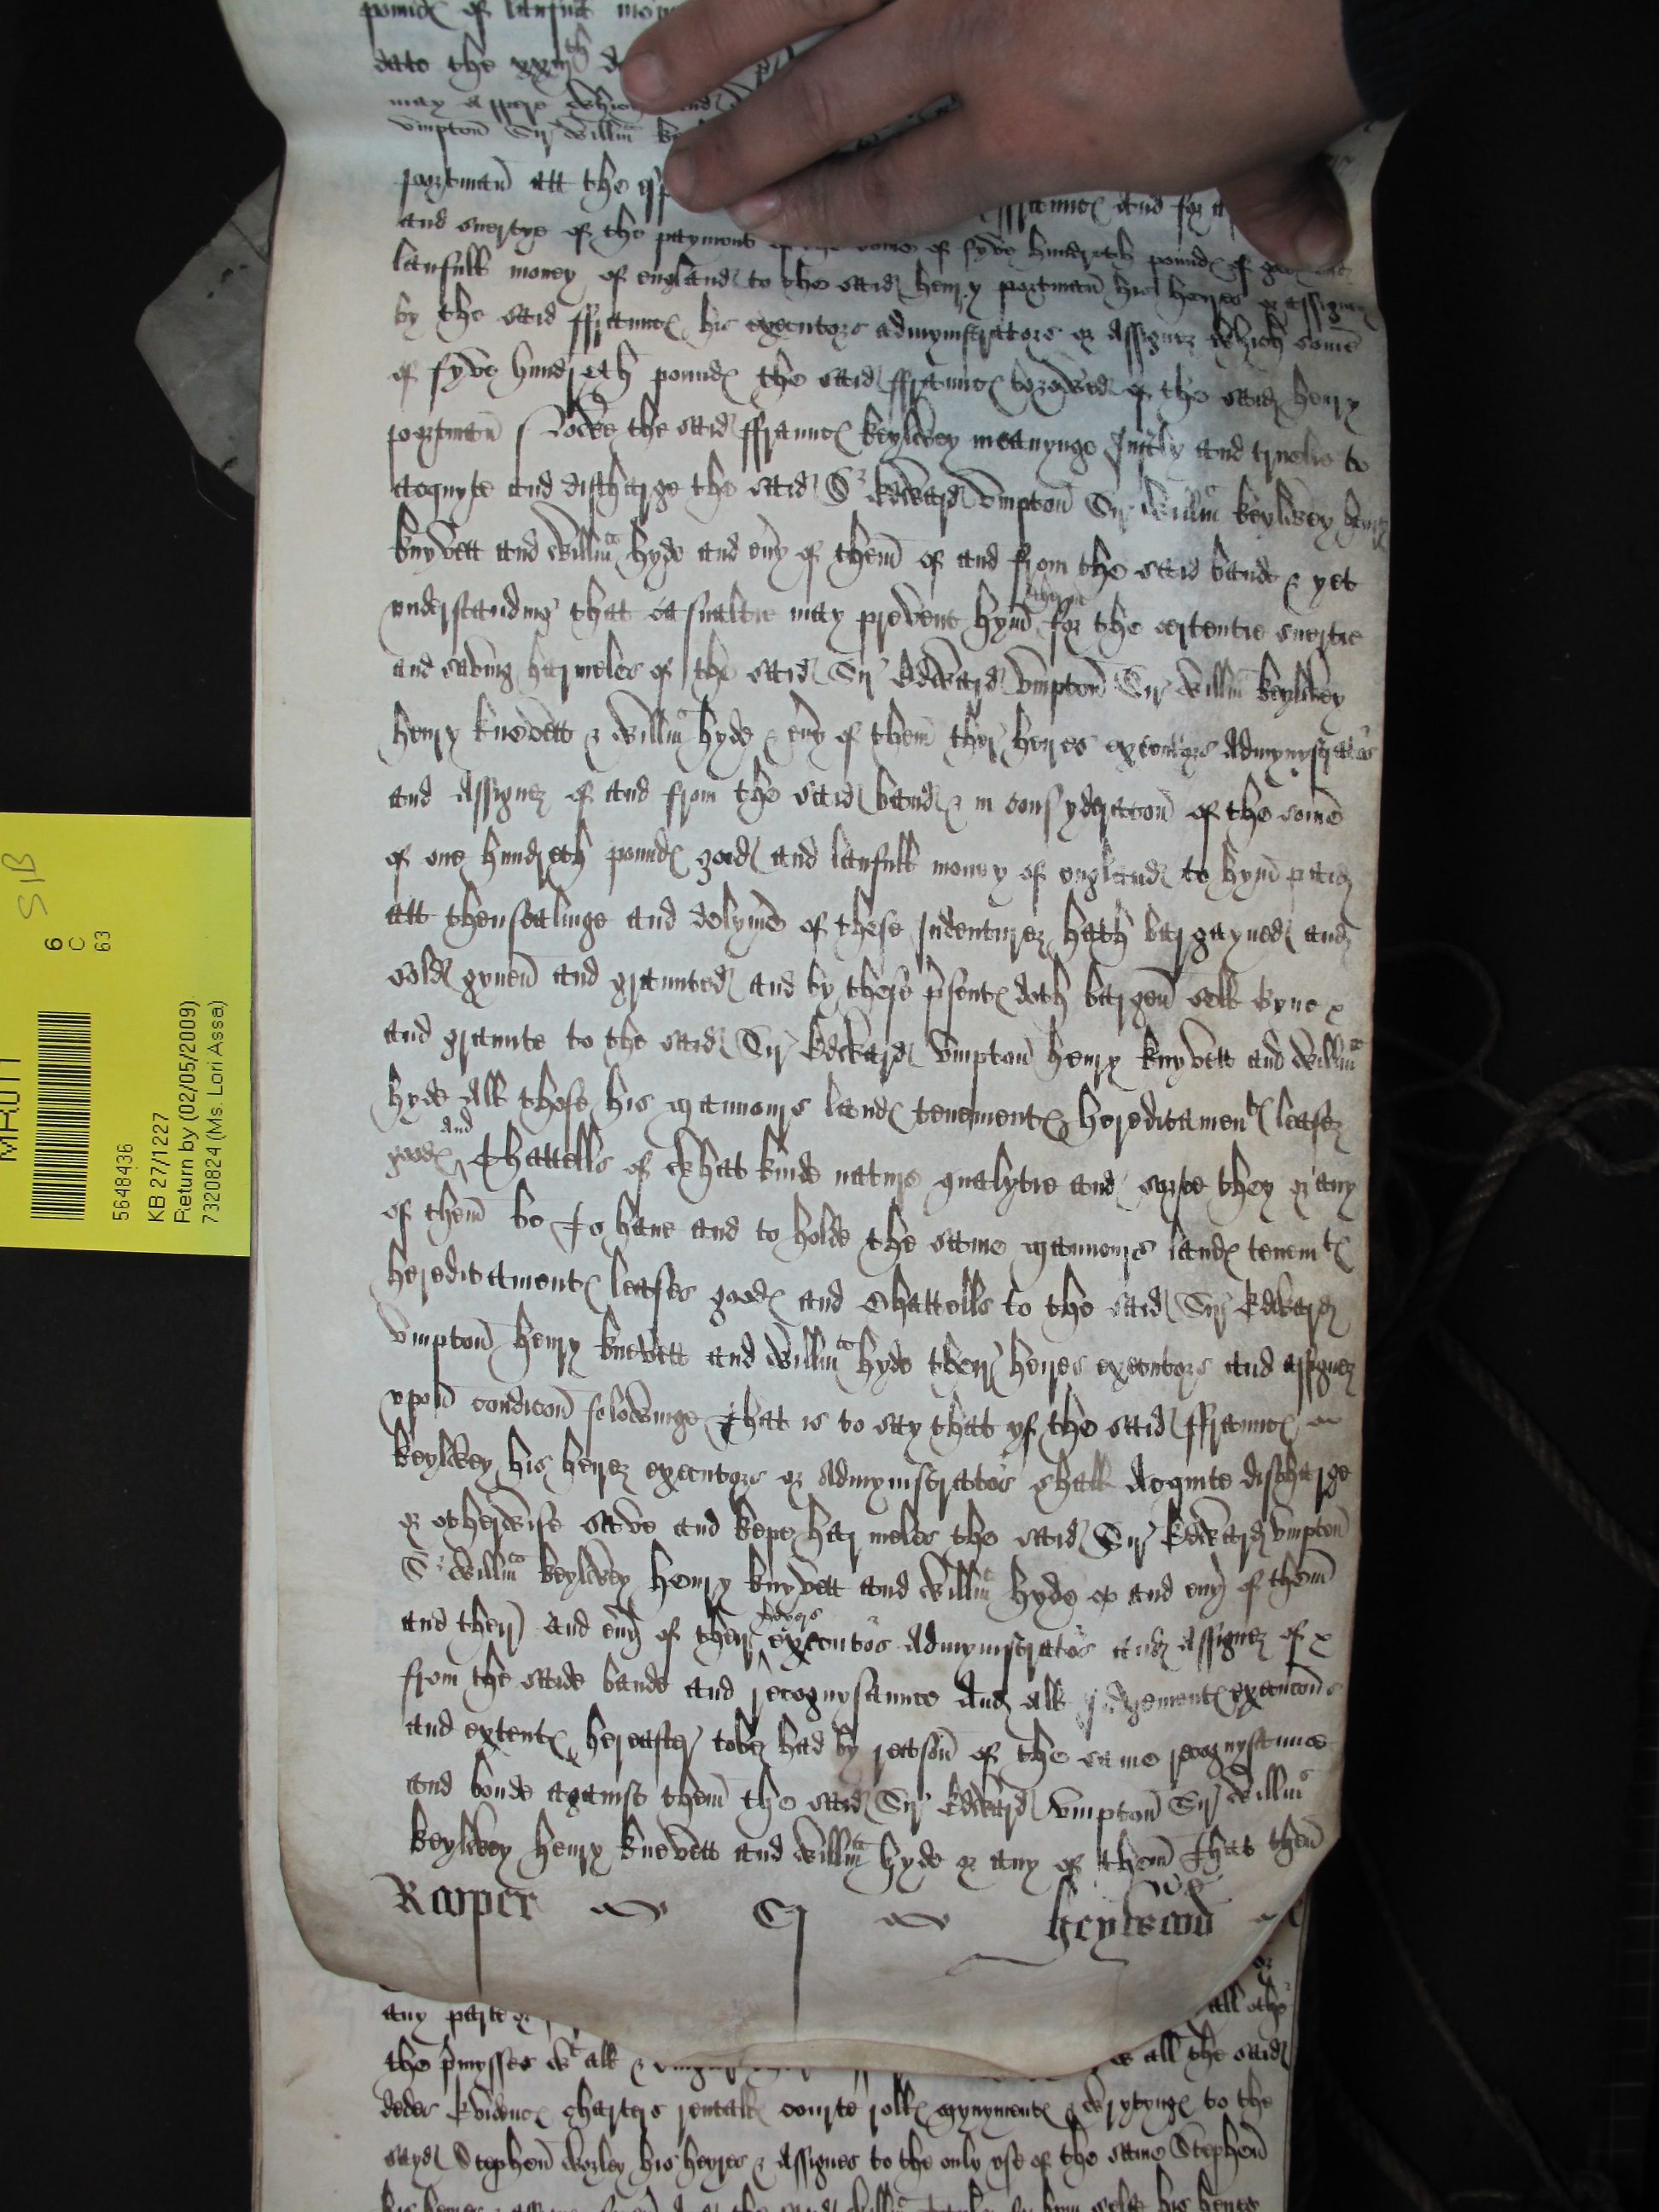 pound of laufull mon
date the xxiijth d
may appere which
Vmpton Sir Willm Ke
portman att the
ffraunc and for
and suertye of the payment of the some of fyve hundreth pound of good and
laufull money of england to the said henry portman his heyres or assignez
by the said ffraunc his executors admynistrators or Assignez which some
of fyve hundreth pound the said ffraunc borowed of the said henry
portman Nowe the said ffraunc keylwey meanynge Justly and truelie to
acquyte and discharge the said Sr Edward Vmpton Sir Willm keylwey henry
knyvett and Willm hyde and eny of them of and from the said bande & yet
understanding that casualtie may prevent hym therin for the certentie suertie
and saving harmeles of the said Sir Edward Vmpton Sir Willm keylwey
henry knevett & Willm hyde & eny of them ther heyres executors Admynystrators
and Assignez of and from the said band & in consyderacon of the some
of one hundreth pound good and laufull money of england to hym paid
att thensealinge and delyuie of these Indenturez hath bargayned and
sold gyuen and graunted and by these psent doth bargen sell gyue &
and graunte to the said Sir Edward Vmpton henry knyvett and Willm
hyde All those his mannors land tenement hereditament leasez
good and Chattells of what kinde nature qualytie and sorte they or any
of them be To haue and to holde the same mannors land tenemt
hereditament leases good and Chattells to the said Sir Edward
Vmpton henry knevett and Willm hyde their heyres executors and assignez
vpon condicon folowinge That is to say that yf the said ffraunc
keylwey his heyrez executors or Admynistrators shall Acquite discharge
or otherwise save and kepe harmeles the said Sir Edward Vmpton
Sr Willm keylwey henry knyvett and Willm hyde and eny of them
and their and eny of their heyers executors Admynistrators and Assignez of &
from the saide bande and recognysaunce And all Judgement execucons
and extent hereafter tobe had by reason of the same recognysaunce
and bonde against them the said Sir Edward Vmpton Sir Willm
keylwey henry knevett and Willm hyde or any of them That then
Roper keylwey
any parte or all other
the pmysses wt all & all the said
dedes Evidenc Charters rentall courte roll mynyment & wrytyng to the
sayd Stephen worley his heyres & Assignes to the only vse of the same Stephen
S/B
6
C
63
5648436
KB 27/1227
Return by (02/05/2009)
7320824 (Ms. Lori Assa)